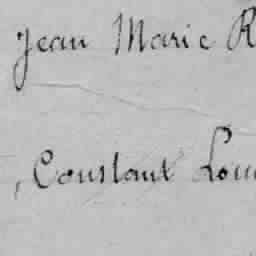 Jean Marie R
, Constant Lou